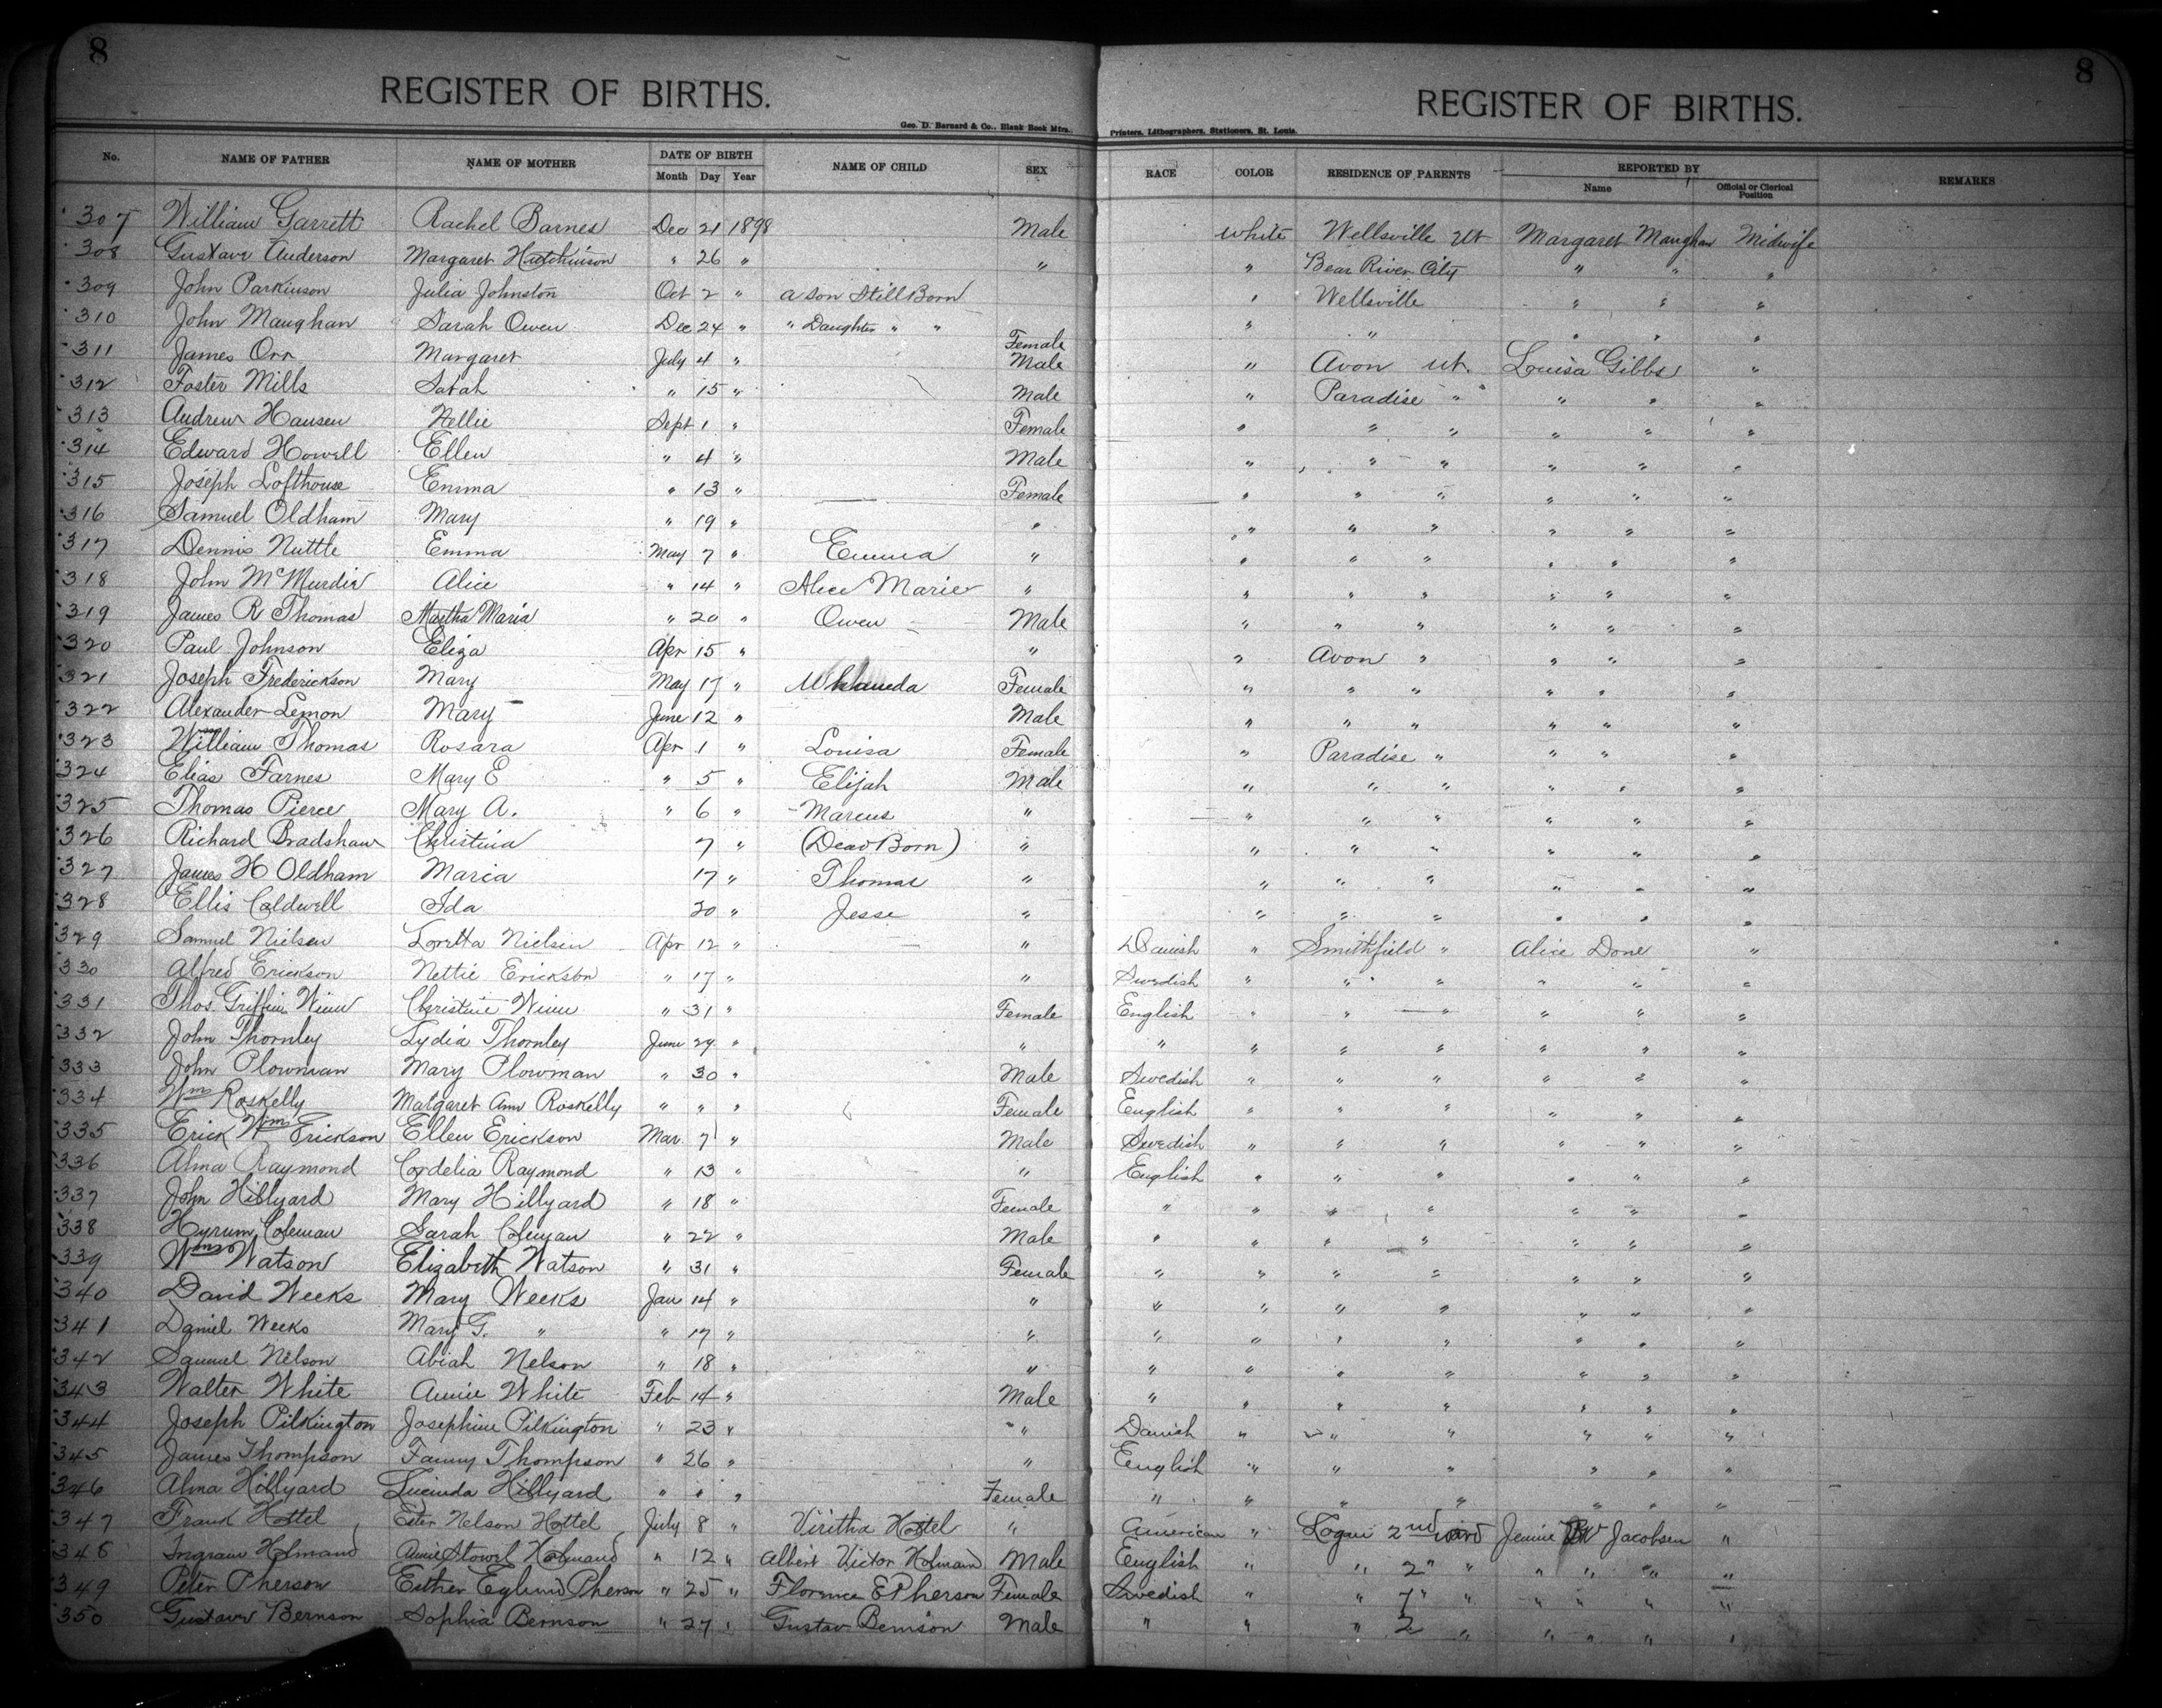 8 8
REGISTER OF BIRTHS. REGISTER OF BIRTHS.
Geo. D. Barnard & Co., Blank Book Mfrs., Printers, Lithographers, Stationers, St. Louis.
No. NAME OF FATHER NAME OF MOTHER DATE OF BIRTH NAME OF CHILD SEX RACE COLOR RESIDENCE OF PARENTS REPORTED BY REMARKS
Month Day Year Name Official or Clerical Position
307 William Garrett Rachel Barnes Dec 21 1898 Male White Wellsville Ut Margaret Maughan Midwife
308 Gustave Anderson Margaret Hutchinson " 26 " " " Bear River City " " "
309 John Parkinson Julia Johnston Oct 2 " a son Still Born " Wellsville " " "
310 John Maughan Sarah Owen Dec 24 " " Daughter " " Female " " " " "
311 James Orr Margaret July 4 " Male " Avon Ut. Louisa Gibbs "
312 Foster Mills Sarah " 15 " Male " Paradise " " " "
313 Andrew Hansen Nellie Sept 1 " Female " " " " " "
314 Edward Howell Ellen " 4 " Male " " " " " "
315 Joseph Lofthouse Emma " 13 " Female " " " " " "
316 Samuel Oldham Mary " 19 " " " " " " " "
317 Dennis Nuttle Emma May 7 " Emma " " " " " " "
318 John McMurdie Alice " 14 " Alice Marie " " " " " " "
319 James R Thomas Martha Maria " 20 " Owen Male " " " " " "
320 Paul Johnson Eliza Apr 15 " " " Avon " " " "
321 Joseph Frederickson Mary May 17 " Female " " " " " "
322 Alexander Lemon Mary June 12 " Male " " " " " "
323 William Thomas Rosara Apr 1 " Louisa Female " Paradise " " " "
324 Elias Farnes Mary E " 5 " Elijah Male " " " " " "
325 Thomas Pierce Mary A. " 6 " Marcus " " " " " " "
326 Richard Bradshaw Christina 7 " (Dead Born) " " " " " " "
327 James H Oldham Maria 17 " Thomas " " " " " " "
328 Ellis Caldwell Ida 20 " Jesse " " " " " " "
329 Samuel Nielsen Loretta Nielsen Apr 12 " " Danish " Smithfield " Alice Done "
330 Alfred Erickson Nettie Erickson " 17 " " Swedish " " " " " "
331 Thos. Griffin Winn Christine Winn " 31 " Female English " " " " " "
332 John Thornley Lydia Thornley June 29 " " " " " " " " "
333 John Plowman Mary Plowman " 30 " Male Swedish " " " " " "
334 Wm Roskelly Margaret Ann Roskelly " " " Female English " " " " " "
335 Erick Wm Erickson Ellen Erickson Mar 7 " Male Swedish " " " " " "
336 Alma Raymond Cordelia Raymond " 13 " " English " " " " " "
337 John Hillyard Mary Hillyard " 18 " Female " " " " " " "
338 Hyrum Coleman Sarah Coleman " 22 " Male " " " " " " "
339 Watson Elizabeth Watson " 31 " Female " " " " " " "
340 David Weeks Mary Weeks Jan 14 " " " " " " " " "
341 Daniel Weeks Mary G. " " 17 " " " " " " " " "
342 Samuel Nelson Abiah Nelson " 18 " " " " " " " " "
343 Walter White Annie White Feb 14 " Male " " " " " " "
344 Joseph Pilkington Josephine Pilkington " 23 " " Danish " " " " " "
345 James Thompson Fanny Thompson " 26 " " English " " " " " "
346 Alma Hillyard Lucinda Hillyard " " " Female " " " " " " "
347 Frank Hottel Ester Nelson Hottel July 8 " Viritha Hottel " American " Logan 2nd ward Jennie Jacobsen "
348 Ingram Holmand Annie Stowel Holmand " 12 " Albert Victor Holmand Male English " " 2" " " " " "
349 Peter Pherson Esther Eglund Pherson " 25 " Florence E Pherson Female Swedish " " 7" " " " " "
350 Gustave Bernson Sophia Bernson " 27 " Gustav Bernson Male " " " 2 " " " " "